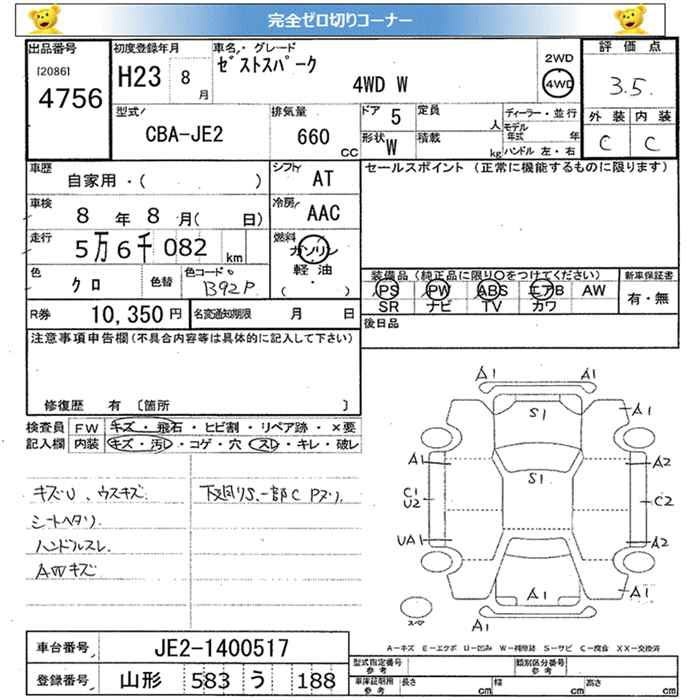 完全ゼロ切りコーナー
出品番号 初度登録年月 車名・グレード 2WD 評価点
[2086] H23 8 月 ゼストスパーク 4WD W 4WD 3.5.
4756
型式 排気量 ドア 5 定員 人 ディーラー・並行 外装 内装
CBA-JE2 660 CC 形状 W 積載 kg モデル年式 年 C C
ハンドル 左・右
車歴 自家用・( ) シフト AT セールスポイント (正常に機能するものに限ります)
車検 8 年 8 月( 日) 冷房 AAC
走行 5万6千082 km 燃料 ガソリン
軽油
( ・ )
色 クロ 色替 色コードNo B92P 装備品(純正品に限り○をつけてください) 新車保証書
PS PW ABS エアB AW 有・無
SR ナビ TV カワ
R券 10,350 円 名変通知期限 月 日 後日品
注意事項申告欄(不具合内容等は具体的に記入して下さい)
修復歴 有 〔箇所 〕
検査員 FW キズ・飛石・ヒビ割・リペア跡・×要
記入欄 内装 キズ・汚レ・コゲ・穴・スレ・キレ・破レ
キズU、ウスキズ 下廻りS.一部C Pズリ.
シートヘタリ
ハンドルスレ
AWキズ
A1 A1
S1 A1
A1 S1 A2
C1 U2 C2
UA1 A2
A1 A1
スペア A1
A-キズ E-エクボ U-凹み W-補修跡 S-サビ C-腐食 XX-交換済
車台番号 JE2-1400517 型式指定番号 参考 類別区分番号 参考
登録番号 山形 583 う 188 車庫証明用 参考 長さ cm 幅 cm 高さ cm